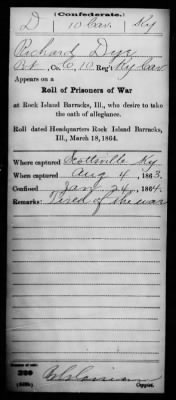 (Confederate.)
D 10 Cav. Ky
Richard Dye
Pvt, Co. C, 10 Reg't Ky Cav.
Appears on a
Roll of Prisoners of War
at Rock Island Barracks, Ill., who desire to take
the oath of allegiance.
Roll dated Headquarters Rock Island Barracks,
Ill., March 18, 1864.
Where captured Scottsville Ky
When captured Aug 4, 1863.
Confined Jan 24, 1864.
Remarks: Tired of the war
Number of roll:
Copyist.